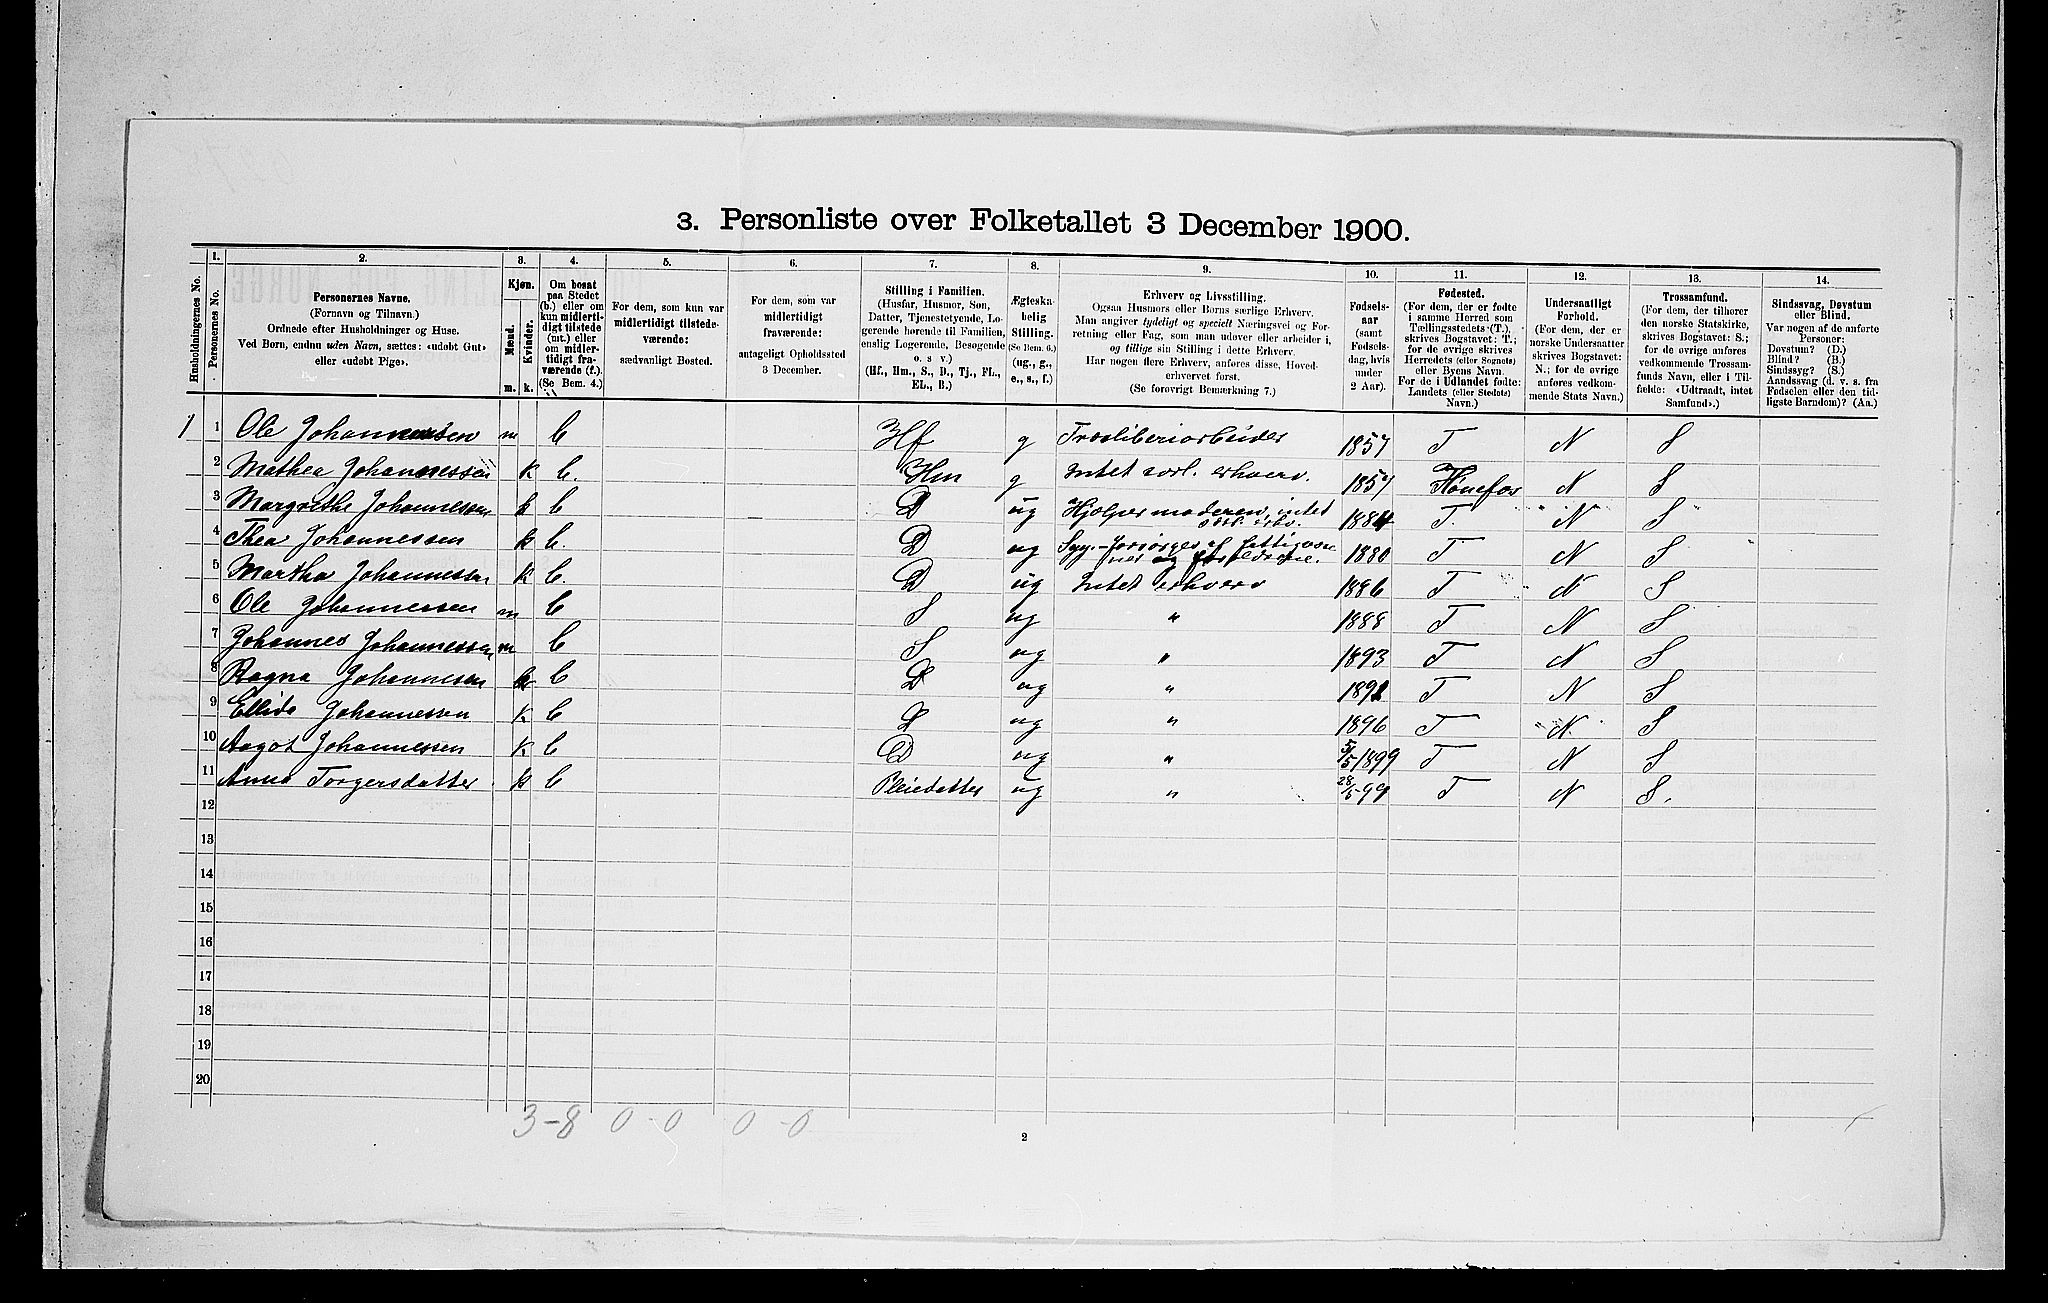 3. Personliste over Folketallet 3 December 1900.
Husholdningernes No.
1.
Personernes No.
2.
Personernes Navne.
(Fornavn og Tilnavn.)
Ordnede efter Husholdninger og Huse.
Ved Børn, endnu uden Navn, sættes: «udøbt Gut»
eller «udøbt Pige».
3.
Kjøn.
Mænd.
Kvinder.
m. k.
4.
Om bosat
paa Stedet
(b.) eller om
kun midlerti-
digt tilstede
(mt.) eller
om midler-
tidigt fra-
værende (f.)
(Se Bem. 4.)
5.
For dem, som kun var
midlertidigt tilstede-
værende:
sædvanligt Bosted.
6.
For dem, som var
midlertidigt
fraværende:
antageligt Opholdssted
3 December.
7.
Stilling i Familien.
(Husfar, Husmor, Søn,
Datter, Tjenestetyende, Lo-
gerende hørende til Familien,
enslig Logerende, Besøgende
o. s. v.)
(Hf., Hm., S., D., Tj., FL.,
EL., B.)
8.
Ægteska-
belig
Stilling.
(Se Bem. 6.)
(ug., g.,
e., s., f.)
9.
Erhverv og Livsstilling.
Ogsaa Husmors eller Børns særlige Erhverv.
Man angiver tydeligt og specielt Næringsvei og For-
retning eller Fag, som man udøver eller arbeider i,
og tillige sin Stilling i dette Erhverv.
Har nogen flere Erhverv, anføres disse, Hoved-
erhvervet først.
(Se forøvrigt Bemærkning 7.)
10.
Fødsels-
aar
(samt
Fødsels-
dag, hvis
under
2 Aar).
11.
Fødested.
(For dem, der er fødte
i samme Herred som
Tællingsstedets (T.),
skrives Bogstavet: T.;
for de øvrige skrives
Herredets (eller Sognets)
eller Byens Navn.
For de i Udlandet fødte:
Landets (eller Stedets)
Navn.)
12.
Undersaatligt
Forhold.
(For dem, der er
norske Undersaatter
skrives Bogstavet:
N.; for de øvrige
anføres vedkom-
mende Stats Navn.)
13.
Trossamfund.
(For dem, der tilhører
den norske Statskirke,
skrives Bogstavet: S.;
for de øvrige anføres
vedkommende Trossam-
funds Navn, eller i Til-
fælde: «Udtraadt, intet
Samfund».)
14.
Sindssvag, Døvstum
eller Blind.
Var nogen af de anførte
Personer:
Døvstum? (D.)
Blind? (B.)
Sindssyg? (S.)
Aandssvag (d. v. s. fra
Fødselen eller den tid-
ligste Barndom)? (Aa.)
1 1 Ole Johannessen m b Hf g Træsliberiarbeider 1857 T N S
2 Mathea Johannessen k b. Hm g Intet særl. erhverv. 1857 Hønefos N S
3 Margrethe Johannessen k b D ug Hjælper moderen, intet
særl. erhv. 1884 T. N S
4 Thea Johannessen k b. D ug Syg. - forsørges af fattigvæs-
net og forældrene. 1880 T N S
5 Martha Johannessen k b. D ug Intet erhverv 1886 T N S
6 Ole Johannessen m b S ug " 1888 T N S
7 Johannes Johannessen m b S ug " 1893 T N S
8 Ragna Johannesen k b D ug " 1892 T N S
9 Ellida Johannessen k b D ug " 1896 T N. S
10 Aagot Johannessen k b D ug " 5/5 1899 T N S
11 Anna Torgersdatter k b Pleiedatter ug " 28/5 99 T N S.
12
13
14
15
16
17
18
19
20
3-8 0-0 0-0
2